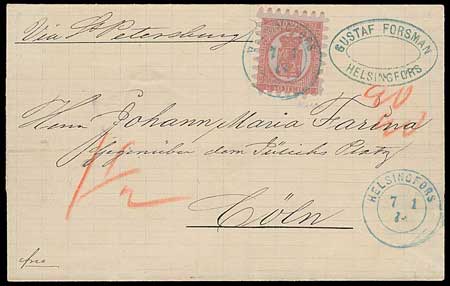 Via St Petersburg
GUSTAF FORSMAN
HELSINGFORS
Herrn Johann Maria Farina
gegenüber dem Jülichs Platz
Cöln
HELSINGFORS
7 1